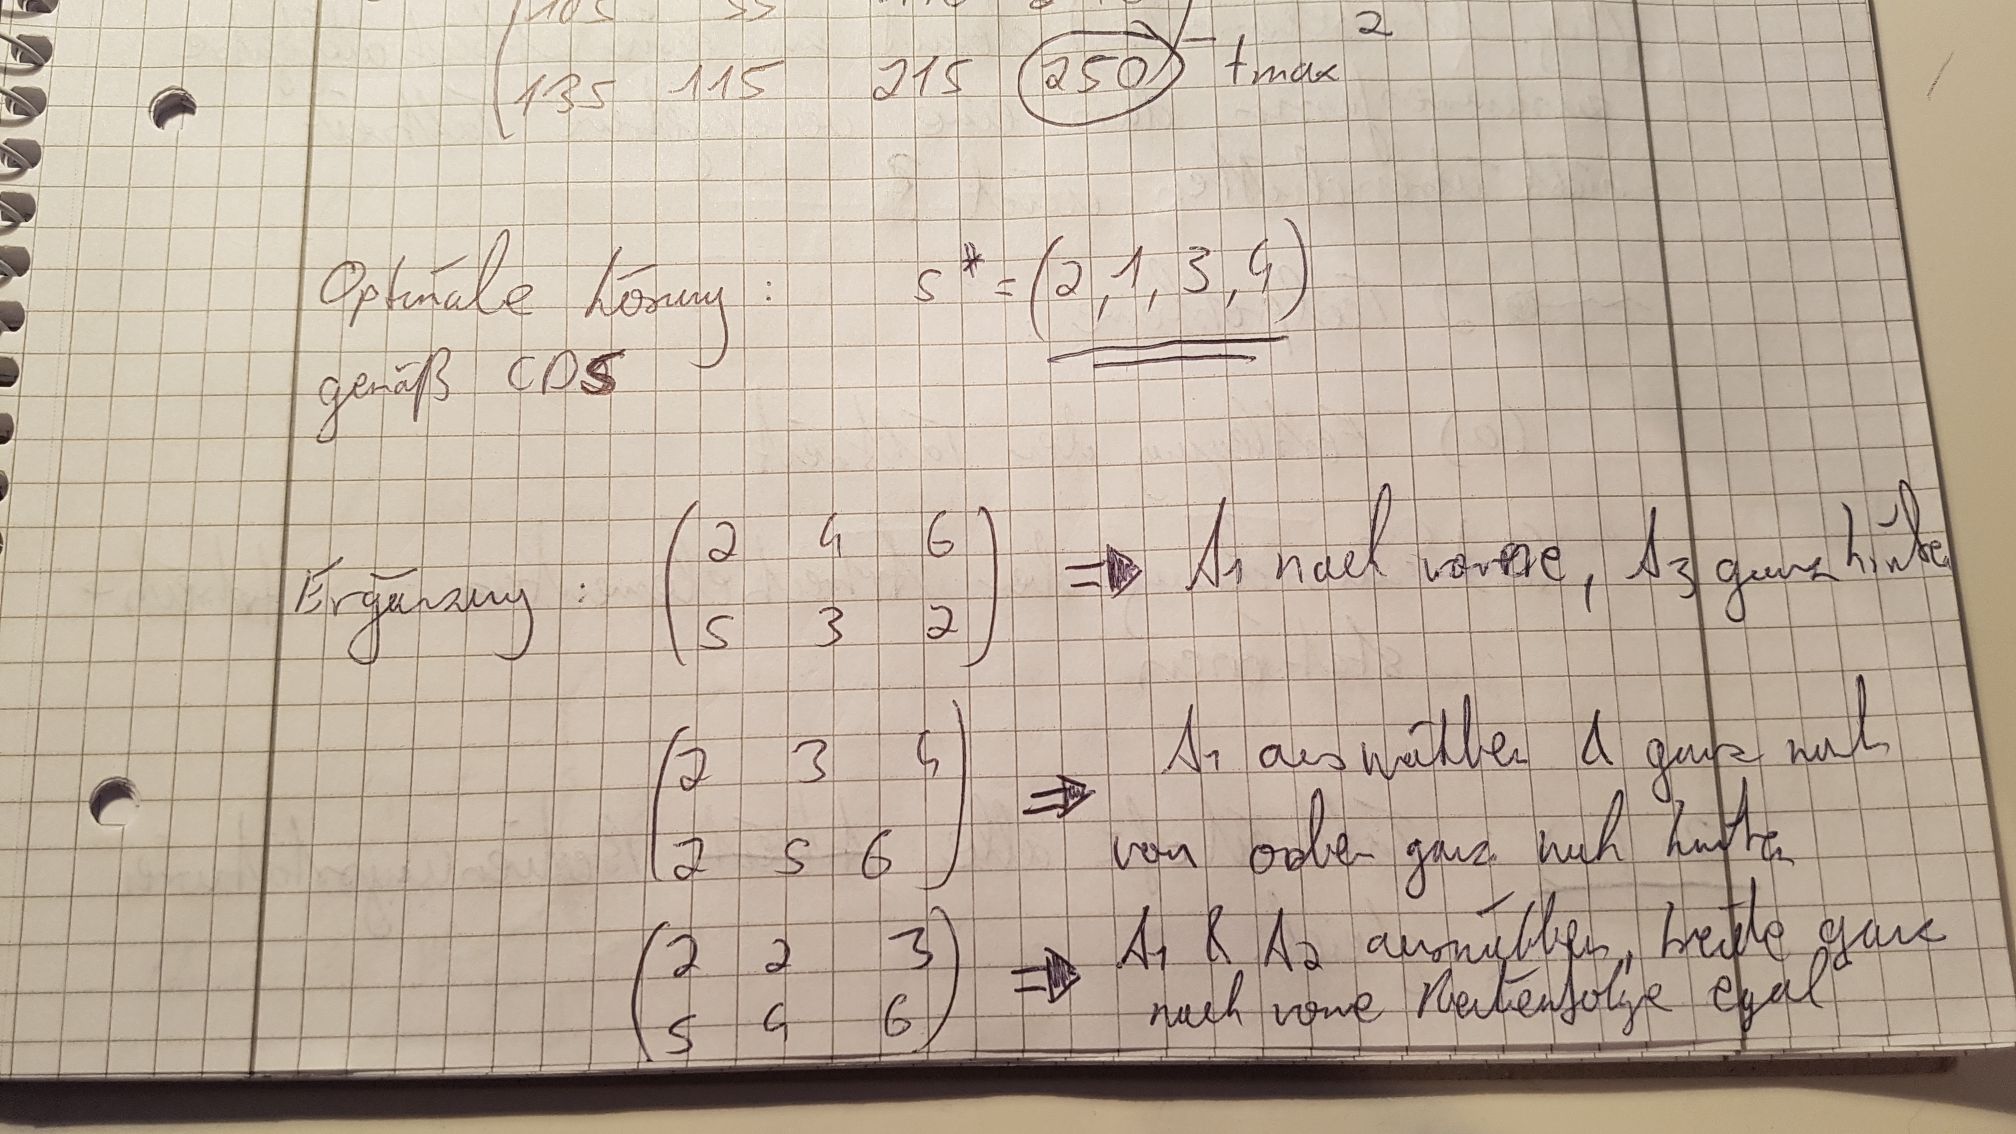 105 55
2
135 115 215 250 tmax
Optimale Lösung : s* = (2, 1, 3, 4)
gemäß CDS
Ergänzung : ( 2 4 6 ) ⇒ A1 nach vorne, A3 ganz hinten
( 5 3 2 )
( 2 3 4 ) ⇒ A1 auswählen & ganz nach
( 2 5 6 ) vorn oder ganz nach hinten
( 2 2 3 ) ⇒ A1 & A2 auswählen, beide ganz
( 5 4 6 ) nach vorne Reihenfolge egal